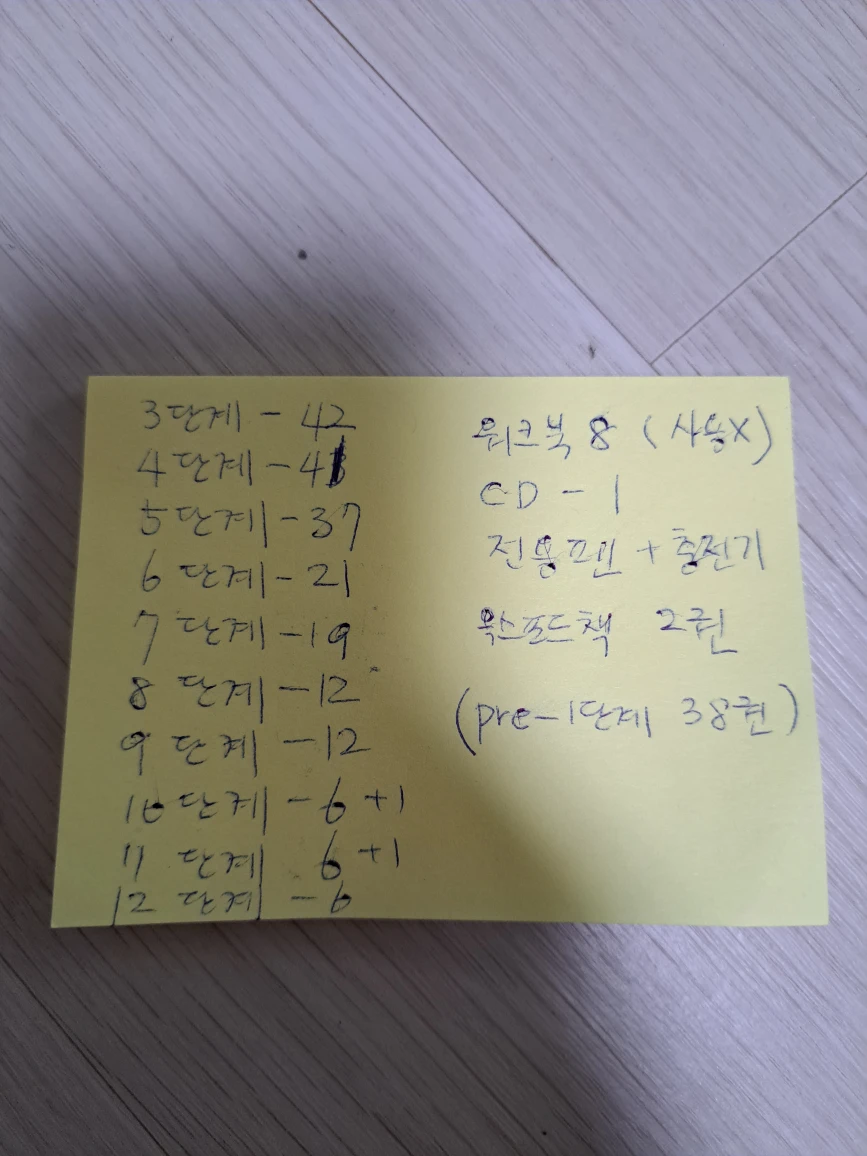 3단계 - 42
4단계 - 41
5단계 - 37
6단계 - 21
7단계 - 19
8단계 - 12
9단계 - 12
10단계 - 6 + 1
11단계 6 + 1
12단계 - 6
워크북 8 (사용X)
CD - 1
전용펜 + 충전기
옥스포드책 2권
(pre-1단계 38권)